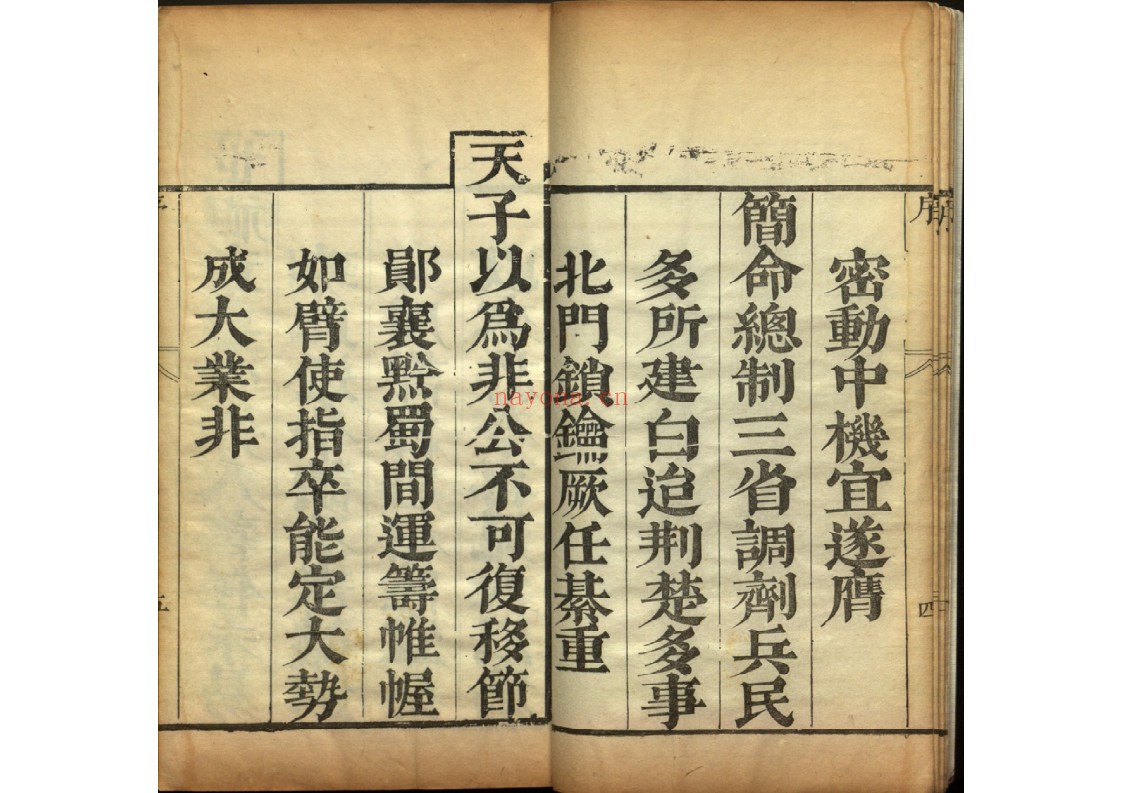 序
四
密動中機宜遂膺
簡命總制三省調劑兵民
多所建白迨荆楚多事
北門鎖鑰厥任綦重
天子以爲非公不可復移節
鄖襄黔蜀間運籌帷幄
如臂使指卒能定大勢
成大業非
五
nayona.cn